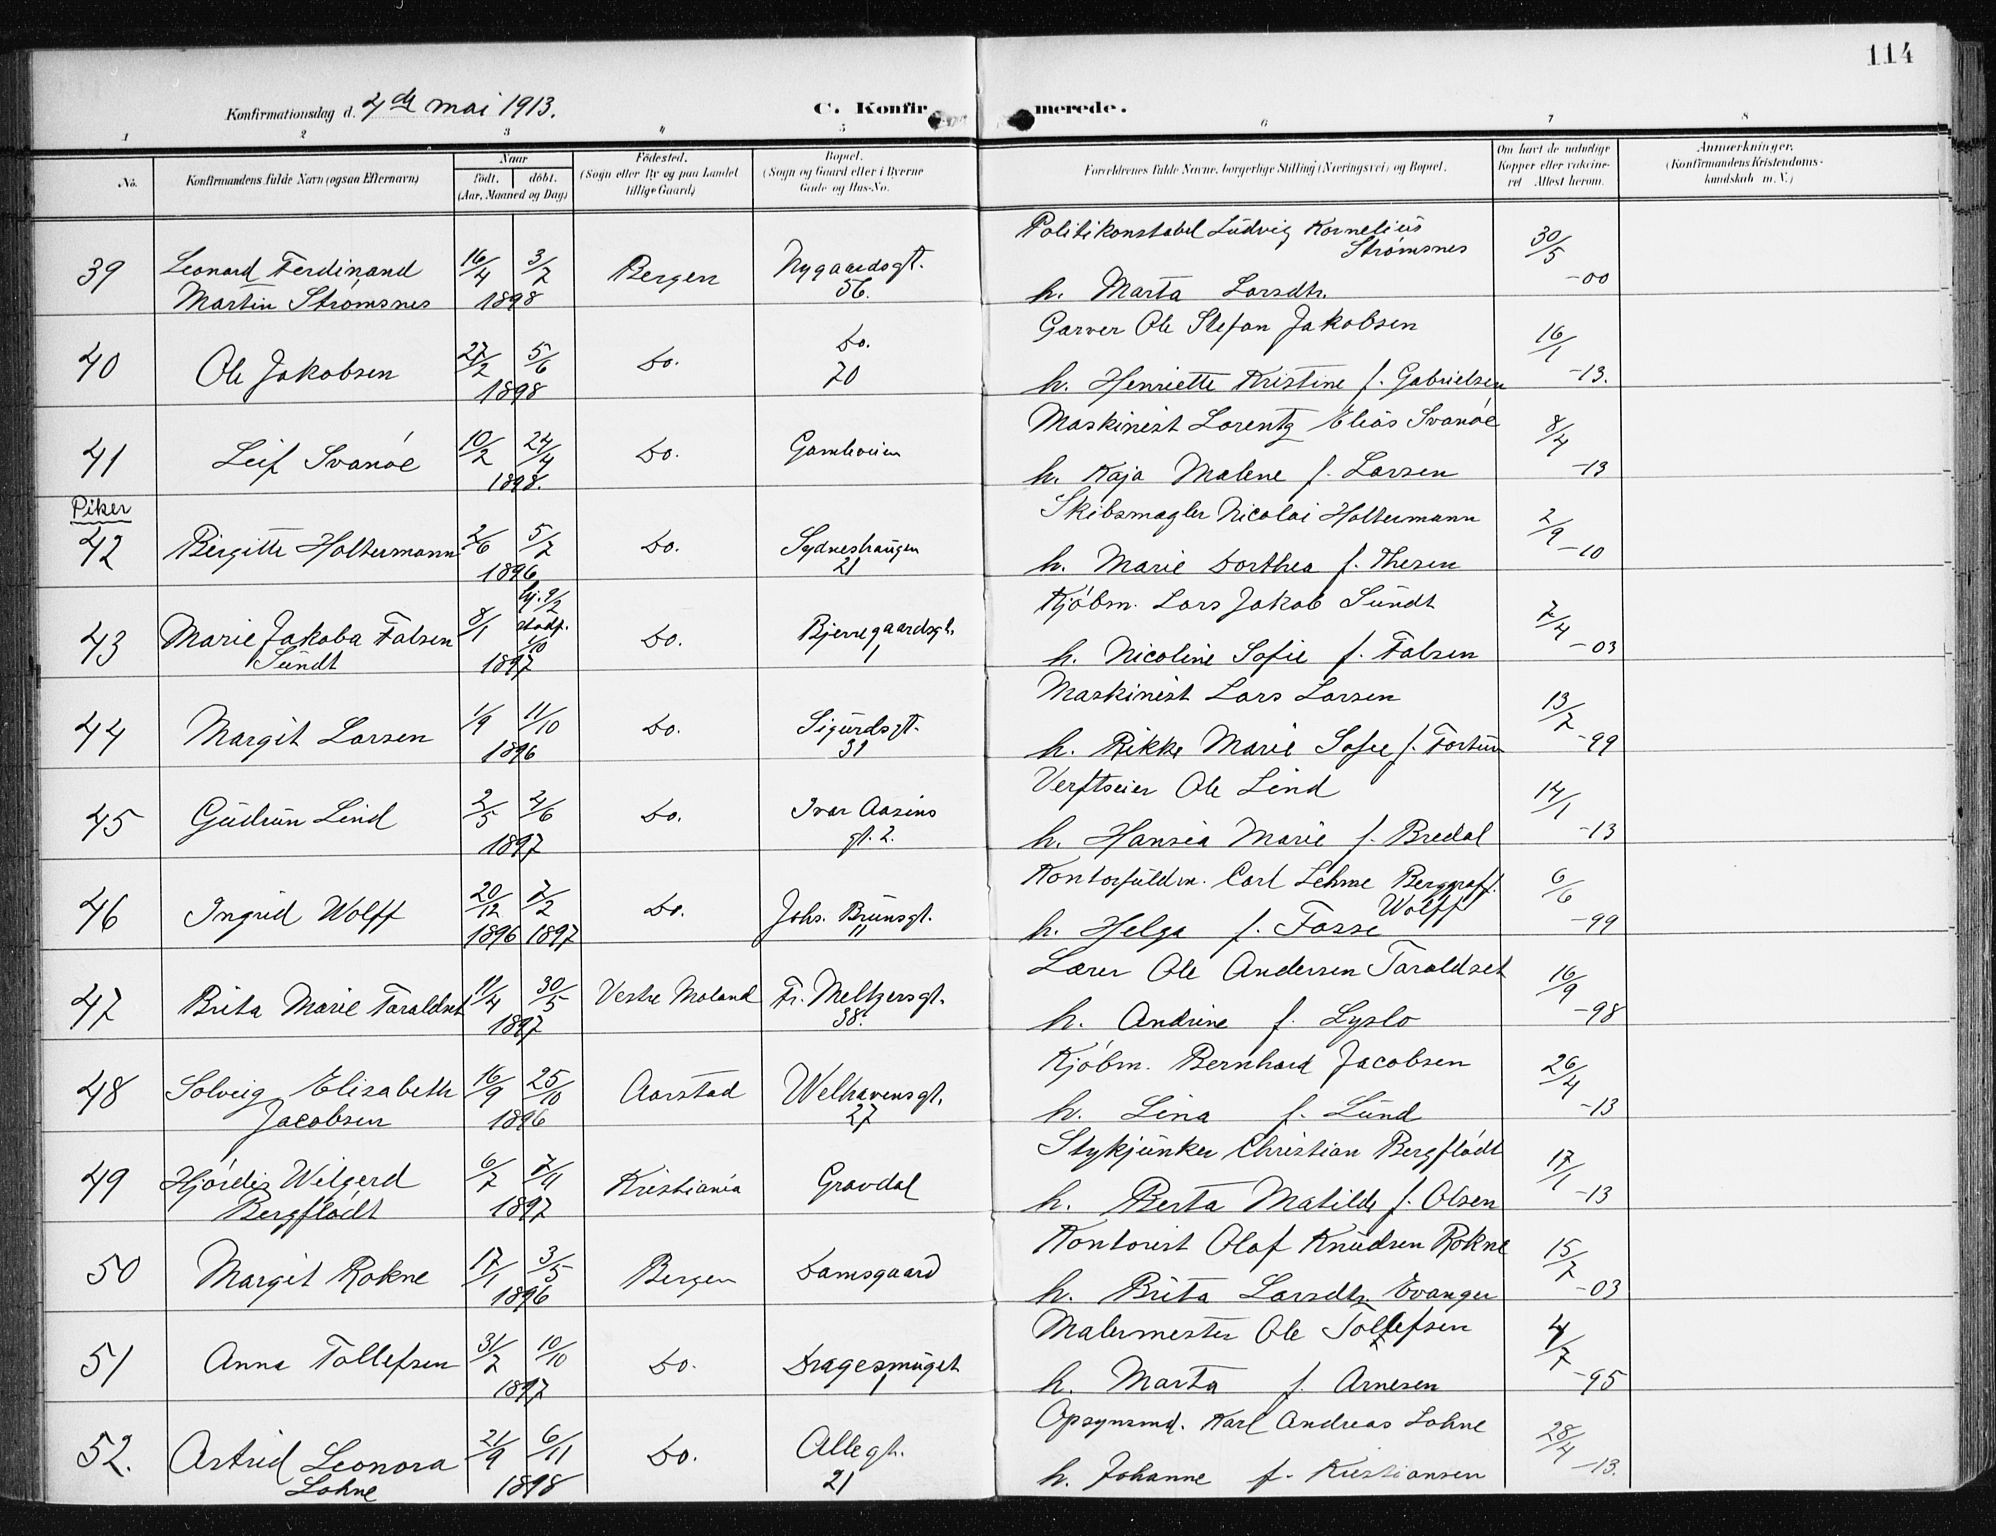 114
Konfirmationsdag d. 4de mai 1913.
C. Konfirmerede.
1 2 3 4 5 6 7 8
No.
Konfirmandens fulde Navn (ogsaa Efternavn)
Naar
født. døbt.
(Aar, Maaned og Dag)
Fødested.
(Sogn eller By og paa Landet
tillige Gaard)
Bopæl.
(Sogn og Gaard eller i Byerne
Gade og Hus-No.
Forældrenes fulde Navne, borgerlige Stilling (Næringsvei) og Bopæl.
Om havt de naturlige
Kopper eller vaksine-
ret Attest herom.
Anmærkninger.
(Konfirmandens Kristendoms-
kundskab m. V.)
39 Leonard Ferdinand 16/4 3/7 Bergen Nygaardsgt.
Martin Strømsnes 1898 56.
Politikonstabel Ludvig Kornelius
Strømsnes 30/5
h. Marta Larsdtr. -00
40 Ole Jakobsen 27/2 5/6 Do. Do.
1898 70
Garver Ole Stefan Jakobsen 16/1
h. Henriette Kristine f. Gabrielsen -13.
41 Leif Svanøe 10/2 24/4 Do. Gamleveien
1898.
Maskinist Lorentz Elias Svanøe 8/4
h. Kaja Malene f. Larsen -13
Piker
42 Birgitte Holtermann 2/6 5/7 Do. Sydneshaugen
1896 21
Skibsmægler Nicolai Holtermann 2/9
h. Marie Dorthea f. Thesen -10
43 Marie Jakoba Falsen 8/1 hj. 9/2 Do. Bjerregaardsgt.
stadf. 1/10
Sundt 1897 1
Kjøbm. Lars Jakob Sundt 7/4
h. Nicoline Sofie f. Falsen -03
44 Margit Larsen 1/9 11/10 Do. Sigurdsgt.
1896 31
Maskinist Lars Larsen 13/7
h. Rikke Marie Sofie f. Fortun -99
45 Gudrun Lind 2/5 4/6 Do. Ivar Aasens
1897 gt. 2.
Verftseier Ole Lind 14/1
h. Hansia Marie f. Bredal -13
46 Ingrid Wolff 20/12 7/2 Do. Johs. Brunsgt.
1896 1897 11
Kontorfuldm. Carl Lehme Berggraff. 6/6
Wolff
h. Helga f. Fasse -99
47 Brita Marie Taraldset 11/4 30/5 Vestre Moland Fr. Meltzersgt.
1897 38.
Lærer Ole Andersen Taraldset 16/9
h. Andrine f. Lyslo -98
48 Solveig Elisabeth 16/9 25/10 Aarstad Welhavensgt.
Jacobsen 1896 27
Kjøbm. Bernhard Jacobsen 26/4
h. Lina f. Lund -13
49 Hjørdis Wilgerd 6/7 7/11 Kristiania Gravdal
Bergflødt 1897
Stykjunker Christian Bergflødt 17/1
h. Berta Matilde f. Olsen -13
50 Margit Rokne 17/1 3/5 Bergen Damsgaard
1896
Kontorist Olaf Knudsen Rokne 15/7
h. Brita Larsdtr. Evanger -03
51 Anna Tollefsen 31/7 10/10 Do. Dragesmuget
1897 1
Malermester Ole Tollefsen 4/7
h. Marta f. Arnesen -95
52. Astrid Leonora 21/9 6/11 Do. Allegt.
Lohne 1898 21
Opsynsmd. Karl Andreas Lohne 28/4
h. Johanne f. Kristiansen -13.